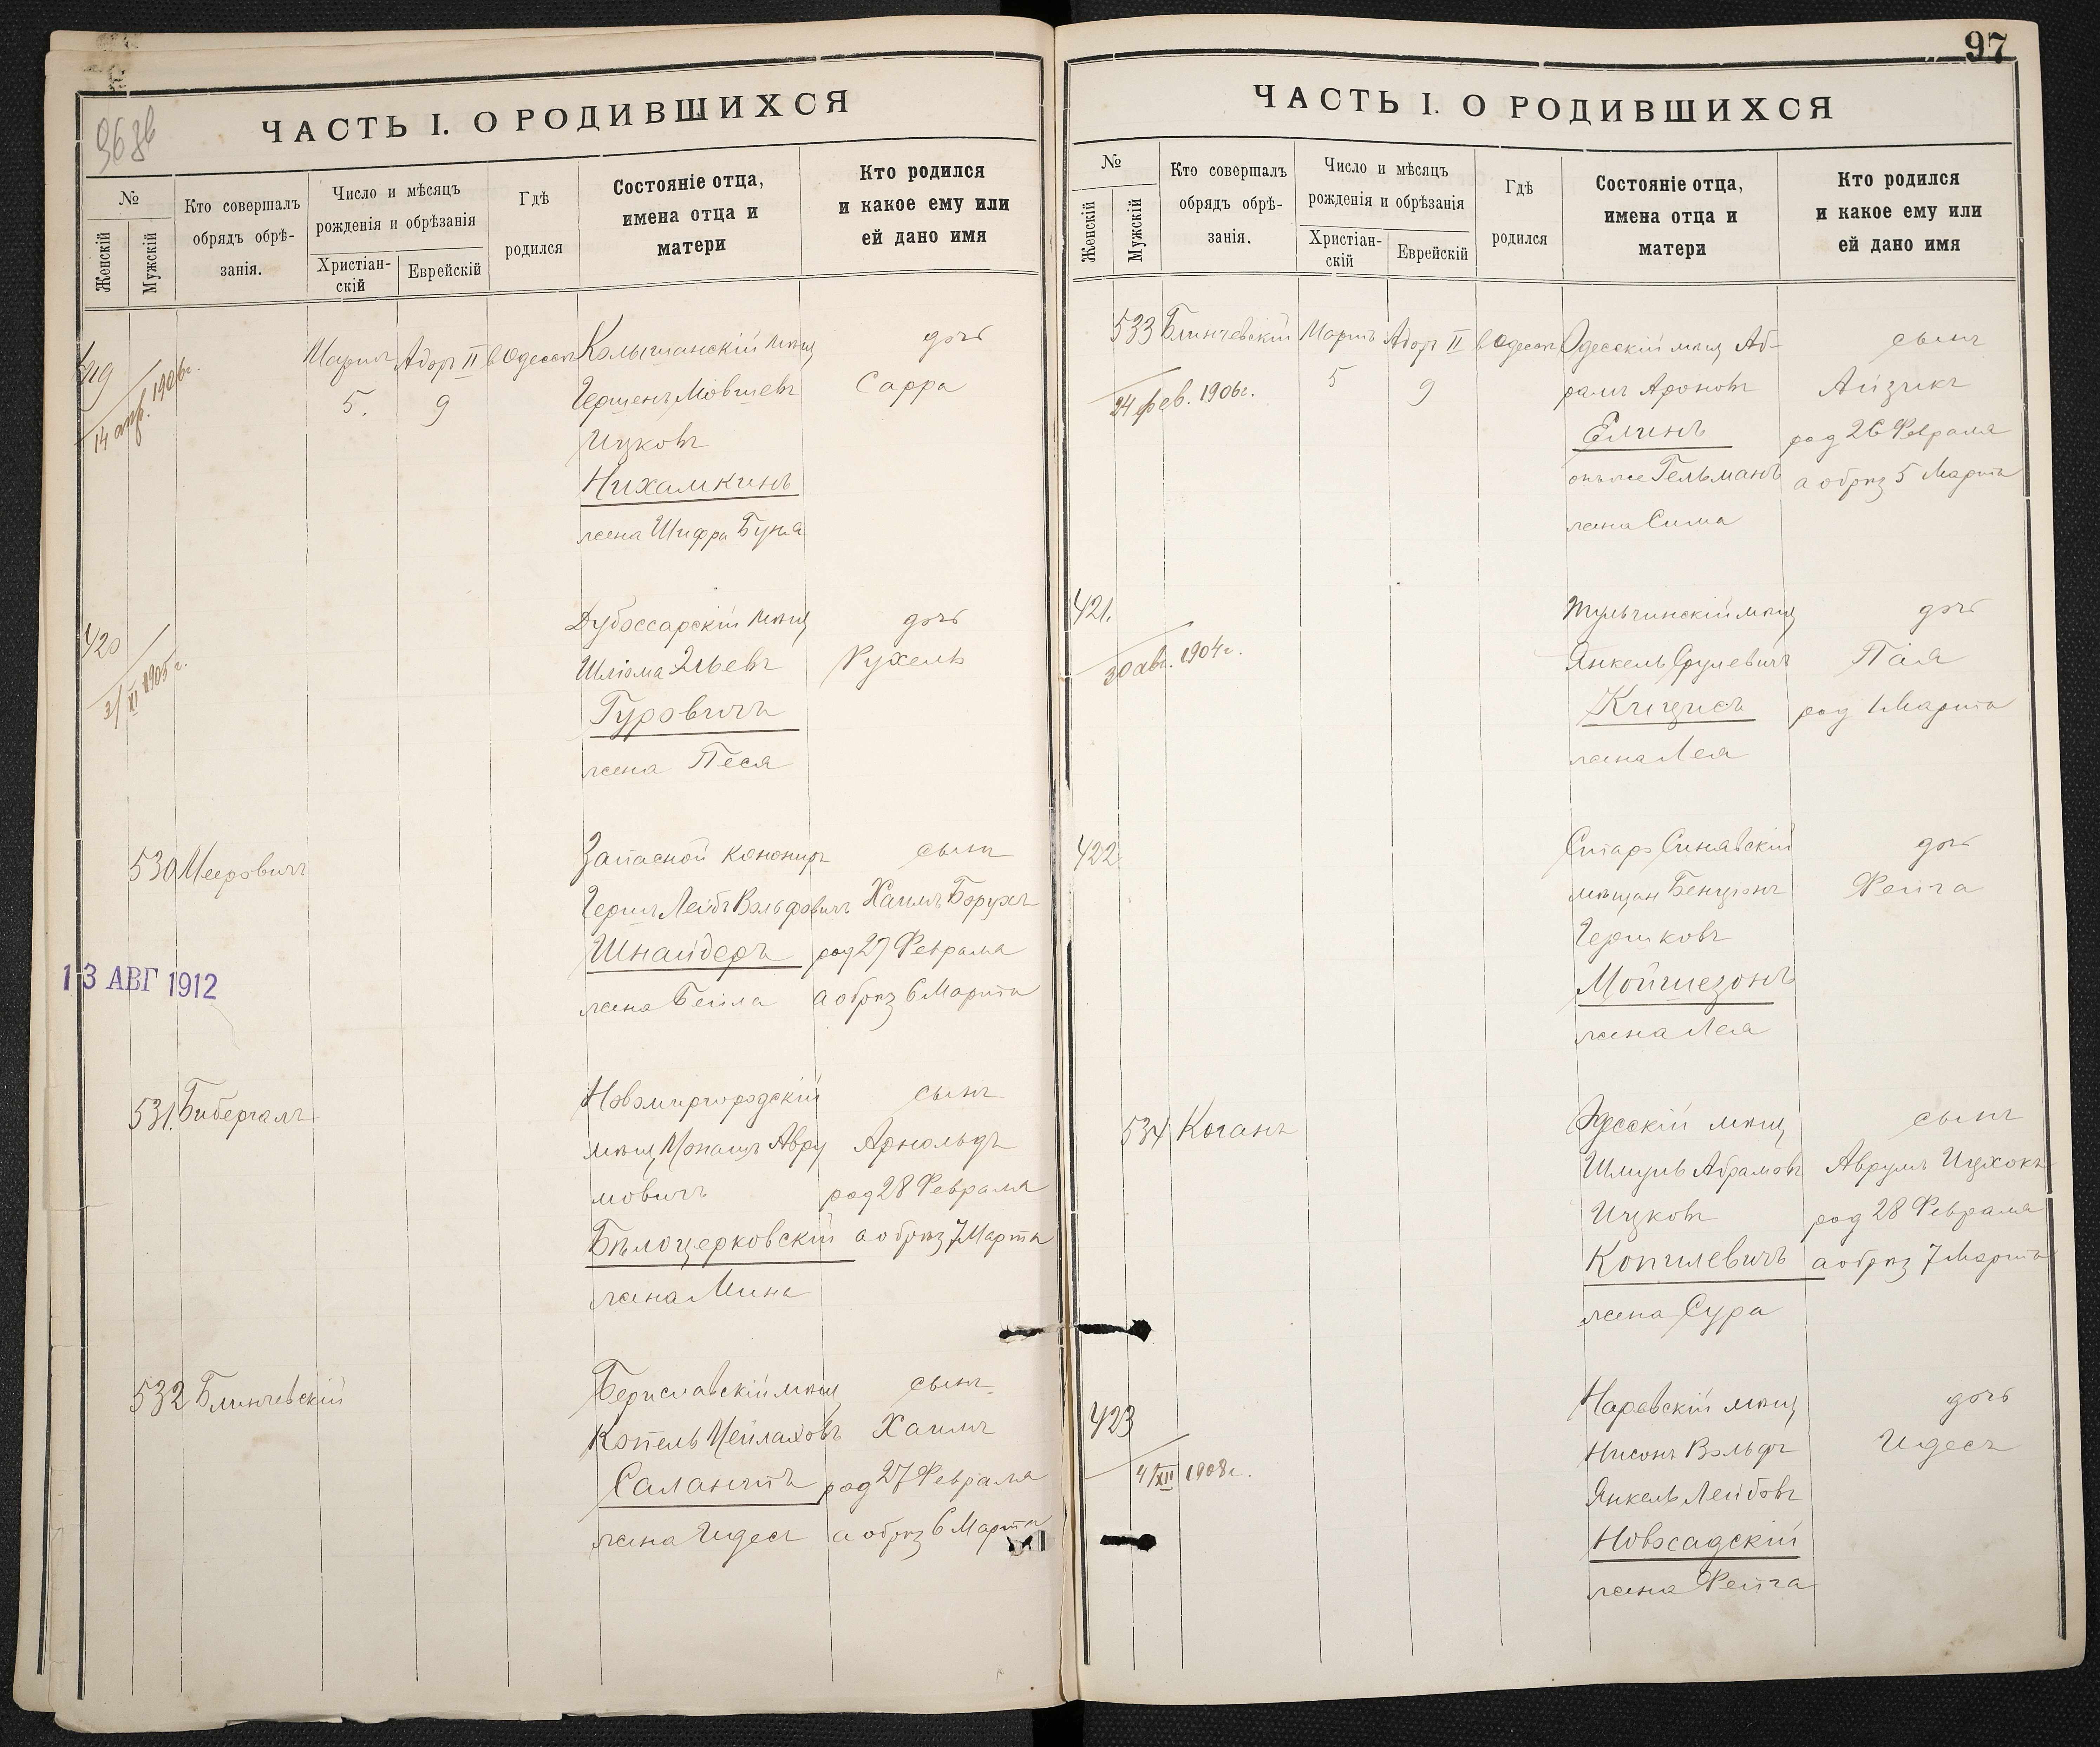 96 зв
ЧАСТЬ I. О РОДИВШИХСЯ
№
Женскій
Мужскій
Кто совершалъ
обрядъ обрѣ-
занія.
Число и мѣсяцъ
рожденія и обрѣзанія
Христіан-
скій
Еврейскій
Гдѣ
родился
Состояніе отца,
имена отца и
матери
Кто родился
и какое ему или
ей дано имя
419
14 апр. 1906г.
Мартъ
5.
Адоръ II
9
въ Одессѣ
Колышанскій мѣщ
Гершенъ Мовшевъ
Ицковъ
Нихамкинъ
жена Шифра Буня
дочь
Сарра
420
2/XI 1905г.
Дубоссарскій мѣщ
Шліома Эльевъ
Гуровичъ
жена Песя
дочь
Рухель
530 Мееровичъ
Запасной канониръ
Гершъ Лейбъ Вольфовичъ
Шнайдеръ
жена Бейла
сынъ
Хаимъ Борухъ
род 27 Февраля
а обрѣз 6 Марта
13 АВГ 1912
531. Бибергалъ
Новомиргородскій
мѣщ Монашъ Авру
мовичъ
Бѣлоцерковскій
жена Мина
сынъ
Арнольдъ
род 28 Февраля
а обрѣз 7 Марта
532 Блинчевскій
Бериславскій мѣщ
Копель Мейлаховъ
Салантъ
жена Идесъ
сынъ
Хаимъ
род 27 Февраля
а обрѣз 6 Марта
97
ЧАСТЬ I. О РОДИВШИХСЯ
№
Женскій
Мужскій
Кто совершалъ
обрядъ обрѣ-
занія.
Число и мѣсяцъ
рожденія и обрѣзанія
Христіан-
скій
Еврейскій
Гдѣ
родился
Состояніе отца,
имена отца и
матери
Кто родился
и какое ему или
ей дано имя
533 Блинчевскій
24 фев. 1906г.
Мартъ
5
Адоръ II
9
въ Одессѣ
Одесскій мѣщ Аб-
рамъ Ароновъ
Елинъ
онъ же Гельманъ
жена Сима
сынъ
Айзикъ
род 26 Февраля
а обрѣз 5 Марта
421.
30 авг. 1904г.
Тульчинскій мѣщ
Янкель Срулевичъ
Кицисъ
жена Лея
дочь
Пая
род 1 Марта
422
Старо Синявскій
мѣщан Бенціонъ
Гершковъ
Мойшезонъ
жена Лея
дочь
Фейга
534 Коганъ
Одесскій мѣщ
Шмуль Абрамовъ
Ицковъ
Копилевичъ
жена Сура
сынъ
Аврумъ Ицхокъ
род 28 Февраля
а обрѣз 7 Марта
423
4/XII 1908г.
Наревскій мѣщ
Нисонъ Вольфъ
Янкель Лейбовъ
Новосадскій
жена Фейга
дочь
Идесъ